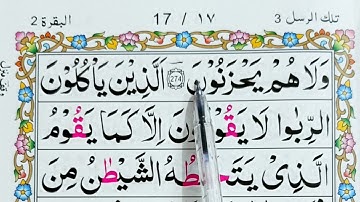 تلك الرسل 3 17 / ١٧ البقرة 2
وَلَا هُمْ يَحْزَنُوْنَ 274 اَلَّذِيْنَ يَاْكُلُوْنَ
الرِّبٰوا لَا يَقُوْمُوْنَ اِلَّا كَمَا يَقُوْمُ
الَّذِىْ يَتَخَبَّطُهُ الشَّيْطٰنُ مِنَ